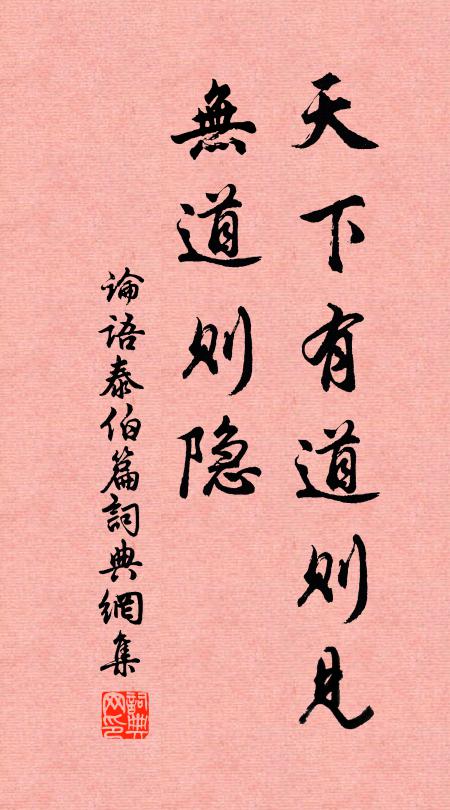 天下有道则見
無道则隐
論语泰伯篇詞典網集
詞典網印